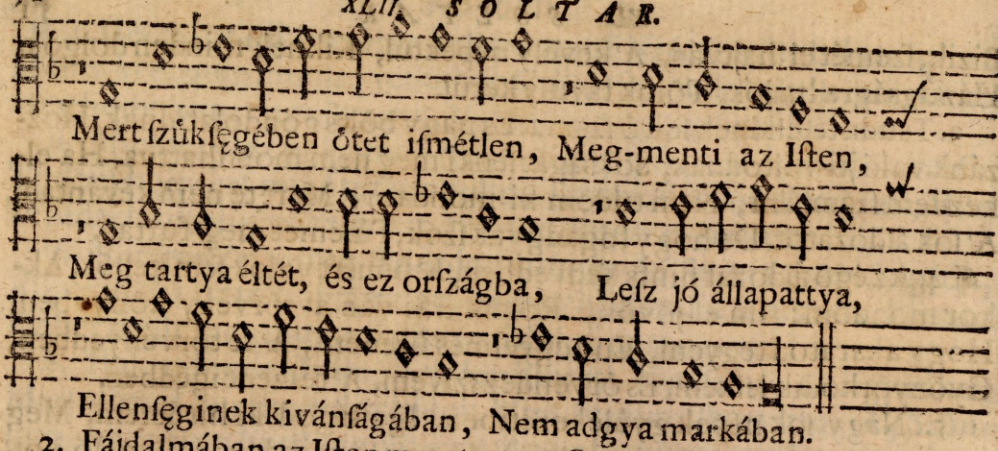 XLII. SOLTAR.
Mert ſzükſęgében őtet iſmétlen, Meg-menti az Iſten,
Meg tartya éltét, és ez orſzágba, Leſz jó állapattya,
Ellenſęginek kivánſágában, Nem adgya markában.
2. Fájdalmában az Iſten